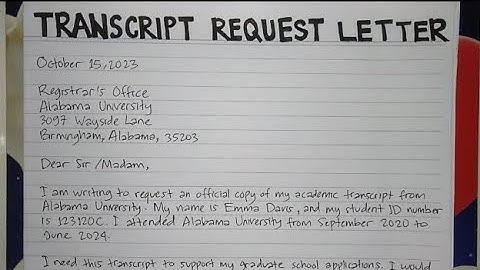 TRANSCRIPT REQUEST LETTER
October 15, 2023
Registrar's Office
Alabama University
3097 Wayside Lane
Birmingham, Alabama, 35203
Dear Sir /Madam,
I am writing to request an official copy of my academic transcript from
Alabama University. My name is Emma Davis, and my student ID number
is 123120C. I attended Alabama University from September 2020 to
June 2024.
I need this transcript to support my graduate school applications. I would